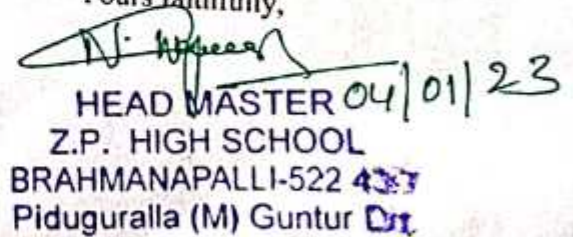 Yours faithfully,
04/01/23
HEAD MASTER
Z.P. HIGH SCHOOL
BRAHMANAPALLI-522 437
Piduguralla (M) Guntur Dt.